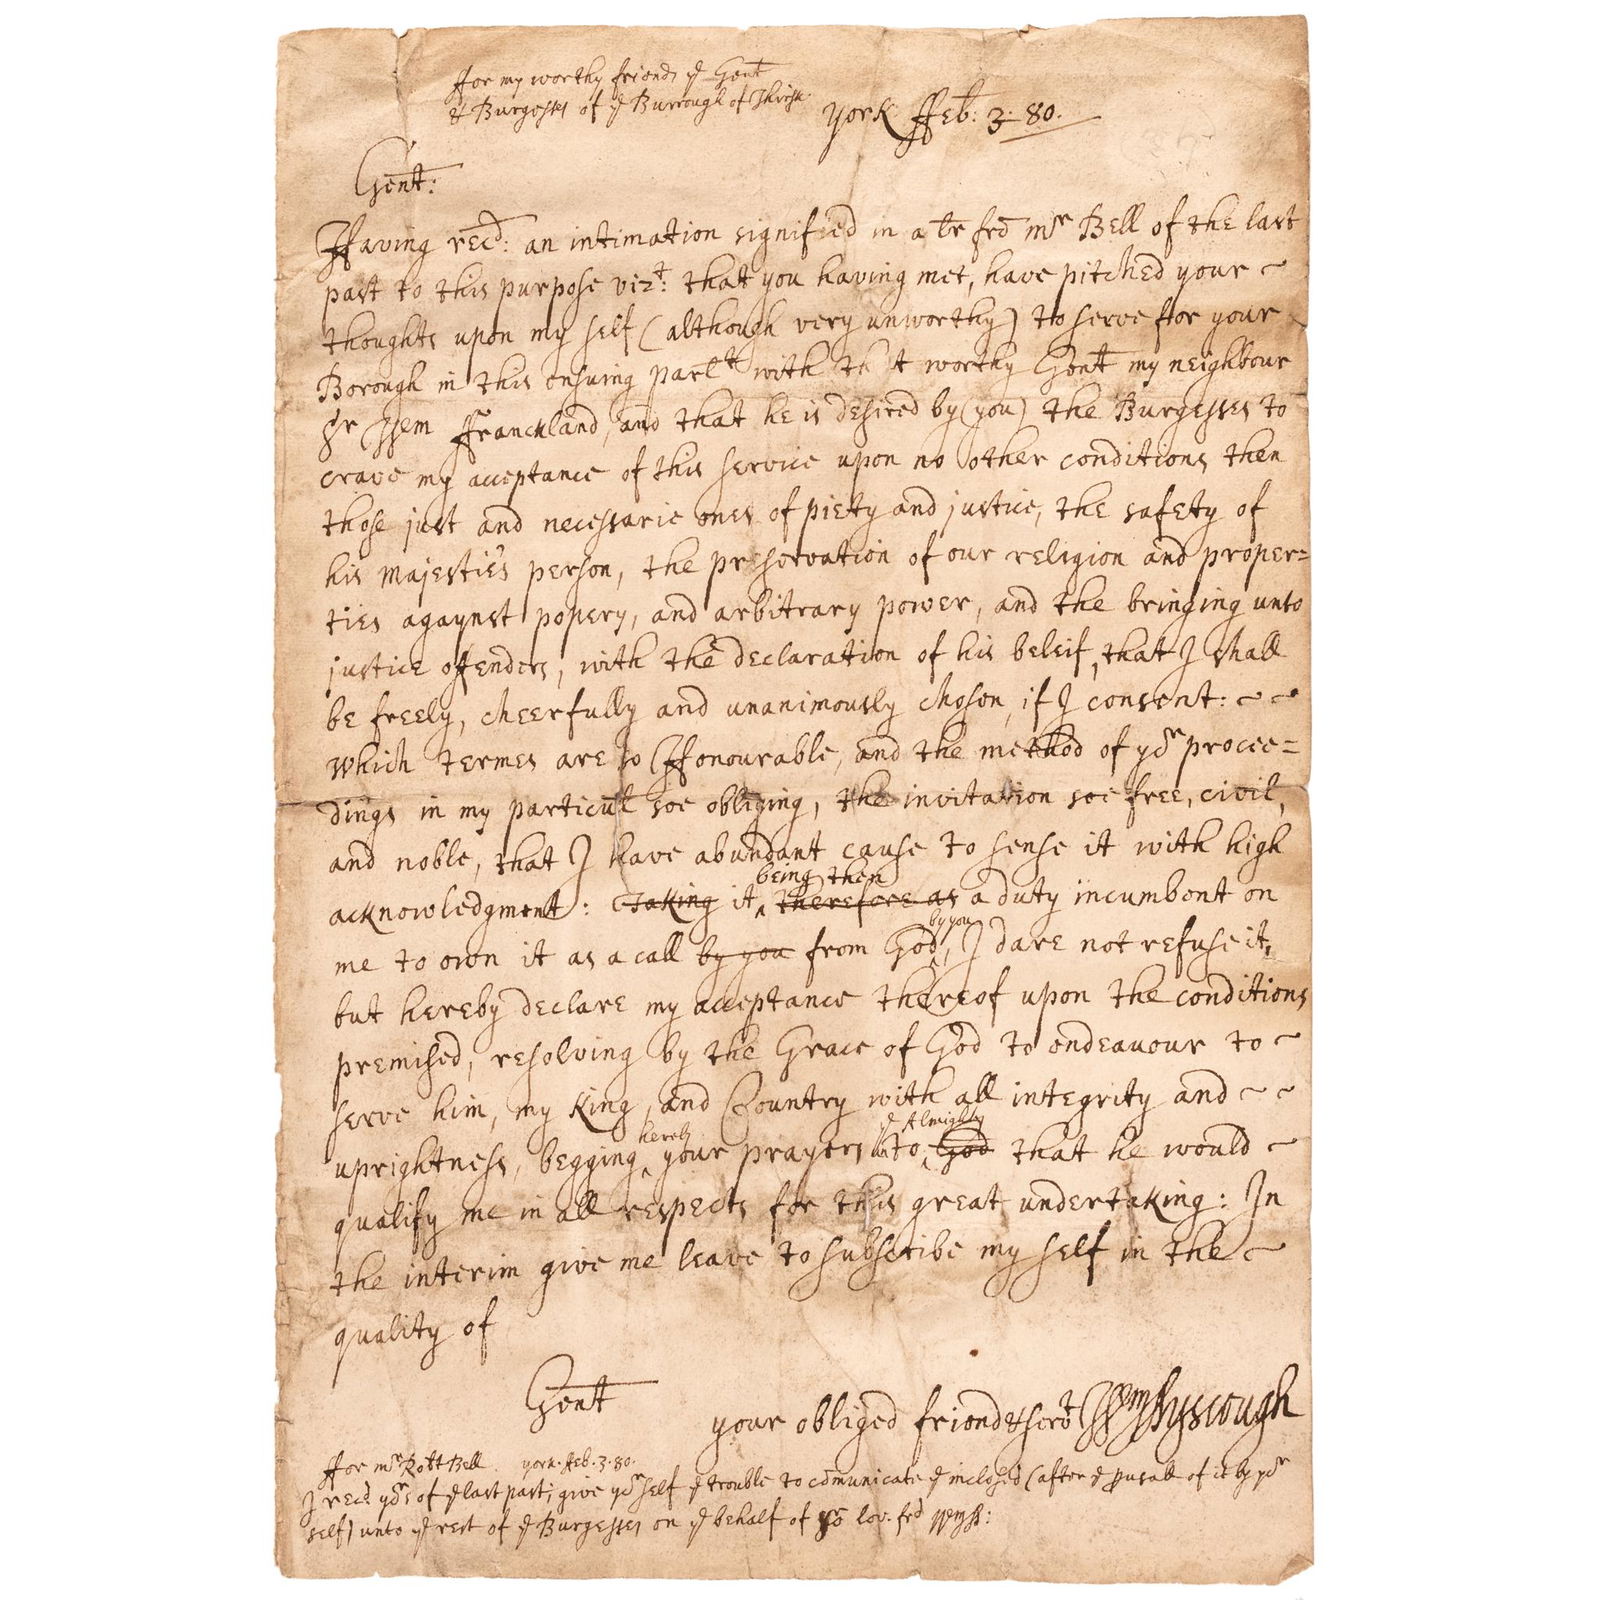 ffor my worthy friends ye Gentt
& Burgesses of ye Burrough of Thirske.
York ffeb: 3: 80.
Gentt:
Having recd: an intimation signified in a ltr frõ mr Bell of the last
past to this purpose vizt: that you having met, have pitched your ~
thoughts upon my self (although very unworthy) to serve ffor your
Borough in this ensuing parlt with th t worthy Gentt my neighbour
Sr Wem ffranckland, and that he is desired by (you) the Burgesses to
crave my acceptance of this service upon no other conditions then
those just and necessarie ones of piety and justice, the safety of
his majestie's person, the preservation of our religion and proper=
ties agaynst popery, and arbitrary power, and the bringing unto
justice offenders, with the declaration of his beleif, that I shall
be freely, cheerfully and unanimously chosen, if I consent: ~ ~
which termes are so Honourable, and the method of yor procee=
dings in my particul soe obliging, the invitation soe free, civil,
and noble, that I have abundant cause to sense it with high
being then
acknowledgment: Taking it ^ therefore as a duty incumbent on
by you
me to own it as a call by you from God ^, I dare not refuse it,
but hereby declare my acceptance thereof upon the conditions
premised, resolving by the Grace of God to endeavour to ~
serve him, my King, and Country with all integrity and ~ ~
herely ye Almighty
uprightness, begging ^ your prayers to ^ God that he would ~
qualify me in all respects for this great undertaking: In
the interim give me leave to subscribe my self in the ~
quality of
Gentt
your obliged friend & servt Wm Ayscough
ffor mr Robtt Bell. york. ffeb. 3. 80.
I recd yors of ye last past; give yor self ye trouble to cõmunicate ye inclosed (after ye perusall of it by yor
self) unto ye rest of ye Burgesses on ye behalf of yor lov. frd WmA: